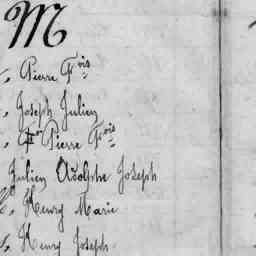 M
, Pierre Fois
, Joseph Julien
, Pierre Fois
Julien Adolphe Joseph
, Henry Marie
, Henry Joseph